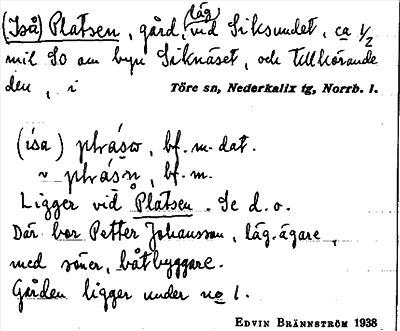 (Iså) Platsen, gård, låg vid Siksundet, ca 1/2
mil SO om byn Siknäset, och tillhörande
den, i Töre sn, Nederkalix tg, Norrb. l.
(isa) phrásα, bf. m. dat.
~ phrásn, bf. m.
Ligger vid Platsen. Se d. o.
Där bor Petter Johansson, läg. ägare,
med söner, båtbyggare.
Gården ligger under no 1.
EDVIN BRÄNNSTRÖM 1938